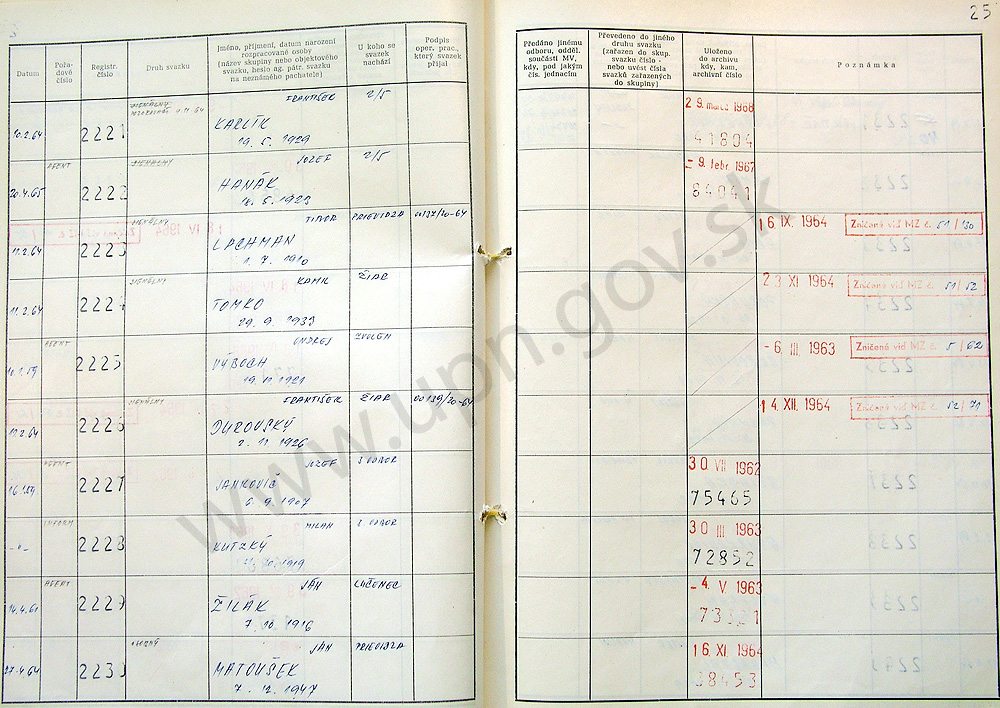 25
Datum
Pořa-
dové
číslo
Registr.
číslo
Druh svazku
Jméno, příjmení, datum narození
rozpracované osoby
(název skupiny nebo objektového
svazku, heslo ag. pátr. svazku
na neznámého pachatele)
U koho se
svazek
nachází
Podpis
oper. prac.,
který svazek
přijal
Předáno jinému
odboru, odděl.
součásti MV,
kdy, pod jakým
čís. jednacím
Převedeno do jiného
druhu svazku
(zařazen do skup.
svazku číslo -
nebo uvést čísla
svazků zařazených
do skupiny)
Uloženo
do archivu
kdy, kam,
archivní číslo
Poznámka
FRANTIŠEK 2/5
10.2.64 2221 KARLÍK
19. 5. 1929
29. março 1968
41804
AGENT JOZEF 2/5
20.4.65 HANÁK
1923
- 9. febr. 1967
84041
TIBOR PRIEVIDZA 00137/20-64
11.2.64 2223 LACHMAN
1. 7. 1910
16 IX. 1964 Zničené viď MZ č. 51/130
KAMIL ŽIAR
11.2.64 2224 TOMKO
29. 9. 1933
23 XI 1964 Zničené viď MZ č. 51/52
AGENT ONDREJ ZVOLEN
2225 VÝBOCH
19. 11. 1921
- 6. III. 1963 Zničené viď MZ č. 5/62
FRANTIŠEK ŽIAR 00139/20-64
11.2.64 2226 ĎUROVSKÝ
2. 11. 1926
14. XII. 1964 Zničené viď MZ č. 52/71
AGENT JOZEF
2227 JANKOVIČ
6. 9. 1907
30 VII 1962
75465
INFORM MILAN
-"- 2228 KUTZKÝ
1919
30 III 1963
72852
AGENT JÁN LUČENEC
14.4.61 2229 ŽILÁK
7. 10. 1916
- 4. V 1963
JÁN PRIEVIDZA
27.4.64 MATOUŠEK
7. 12. 1947
16. XI. 1964
www.upn.gov.sk